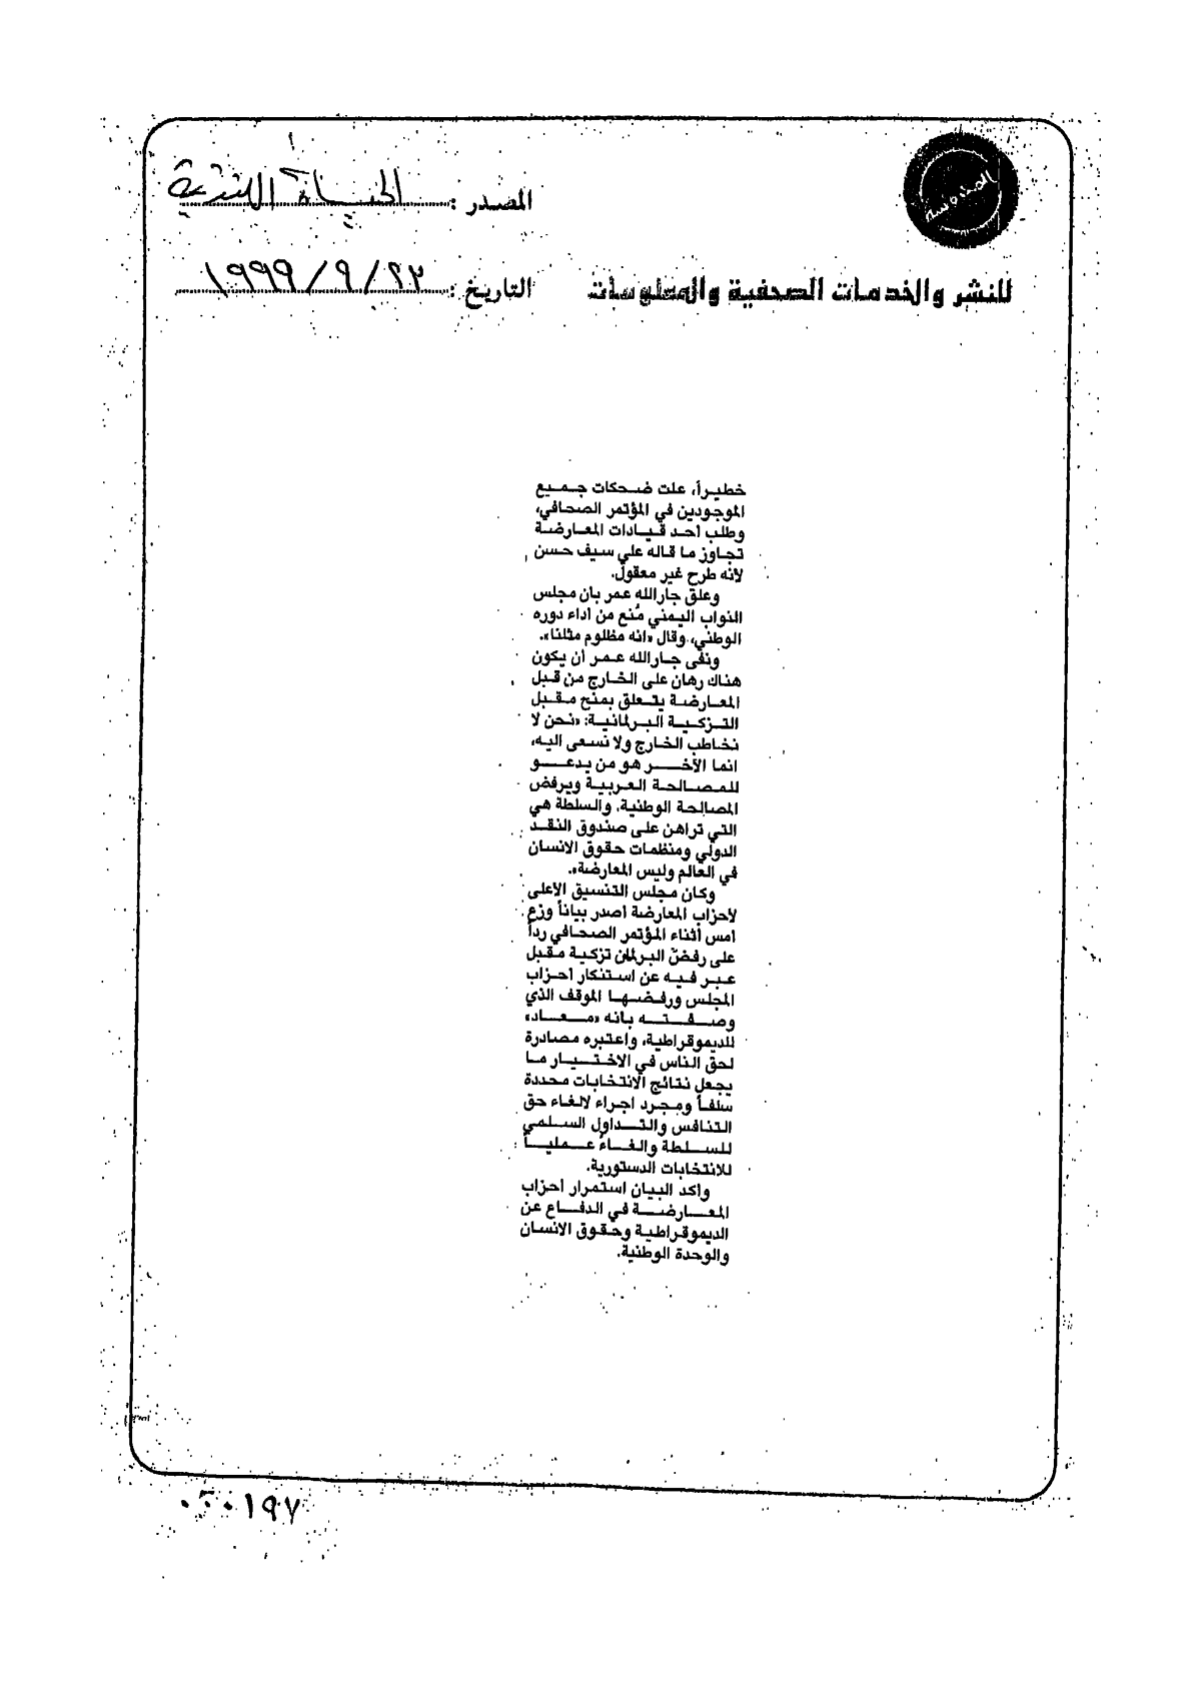 المصدر : الحياة اللندنية
للنشر والخدمات الصحفية والمعلومات
التاريخ : ٢٣ / ٩ / ١٩٩٩
خطيراً، علت ضحكات جميع
الموجودين في المؤتمر الصحافي،
وطلب احد قيادات المعارضة
تجاوز ما قاله علي سيف حسن
لانه طرح غير معقول.
وعلق جارالله عمر بان مجلس
النواب اليمني مُنع من اداء دوره
الوطني، وقال «انه مظلوم مثلنا».
ونفى جارالله عمر ان يكون
هناك رهان على الخارج من قبل
المعارضة يتعلق بمنح مقبل
التزكية البرلمانية: «نحن لا
نخاطب الخارج ولا نسعى اليه،
انما الآخر هو من يدعو
للمصالحة العربية ويرفض
المصالحة الوطنية، والسلطة هي
التي تراهن على صندوق النقد
الدولي ومنظمات حقوق الانسان
في العالم وليس المعارضة».
وكان مجلس التنسيق الأعلى
لأحزاب المعارضة أصدر بياناً وزع
امس أثناء المؤتمر الصحافي رداً
على رفض البرلمان تزكية مقبل
عبر فيه عن استنكار أحزاب
المجلس ورفضها الموقف الذي
وصفته بانه «معاد»
للديموقراطية، واعتبره مصادرة
لحق الناس في الاختيار ما
يجعل نتائج الانتخابات محددة
سلفاً ومجرد اجراء لالغاء حق
التنافس والتداول السلمي
للسلطة والغاءً عملياً
للانتخابات الدستورية.
واكد البيان استمرار احزاب
المعارضة في الدفاع عن
الديموقراطية وحقوق الانسان
والوحدة الوطنية.